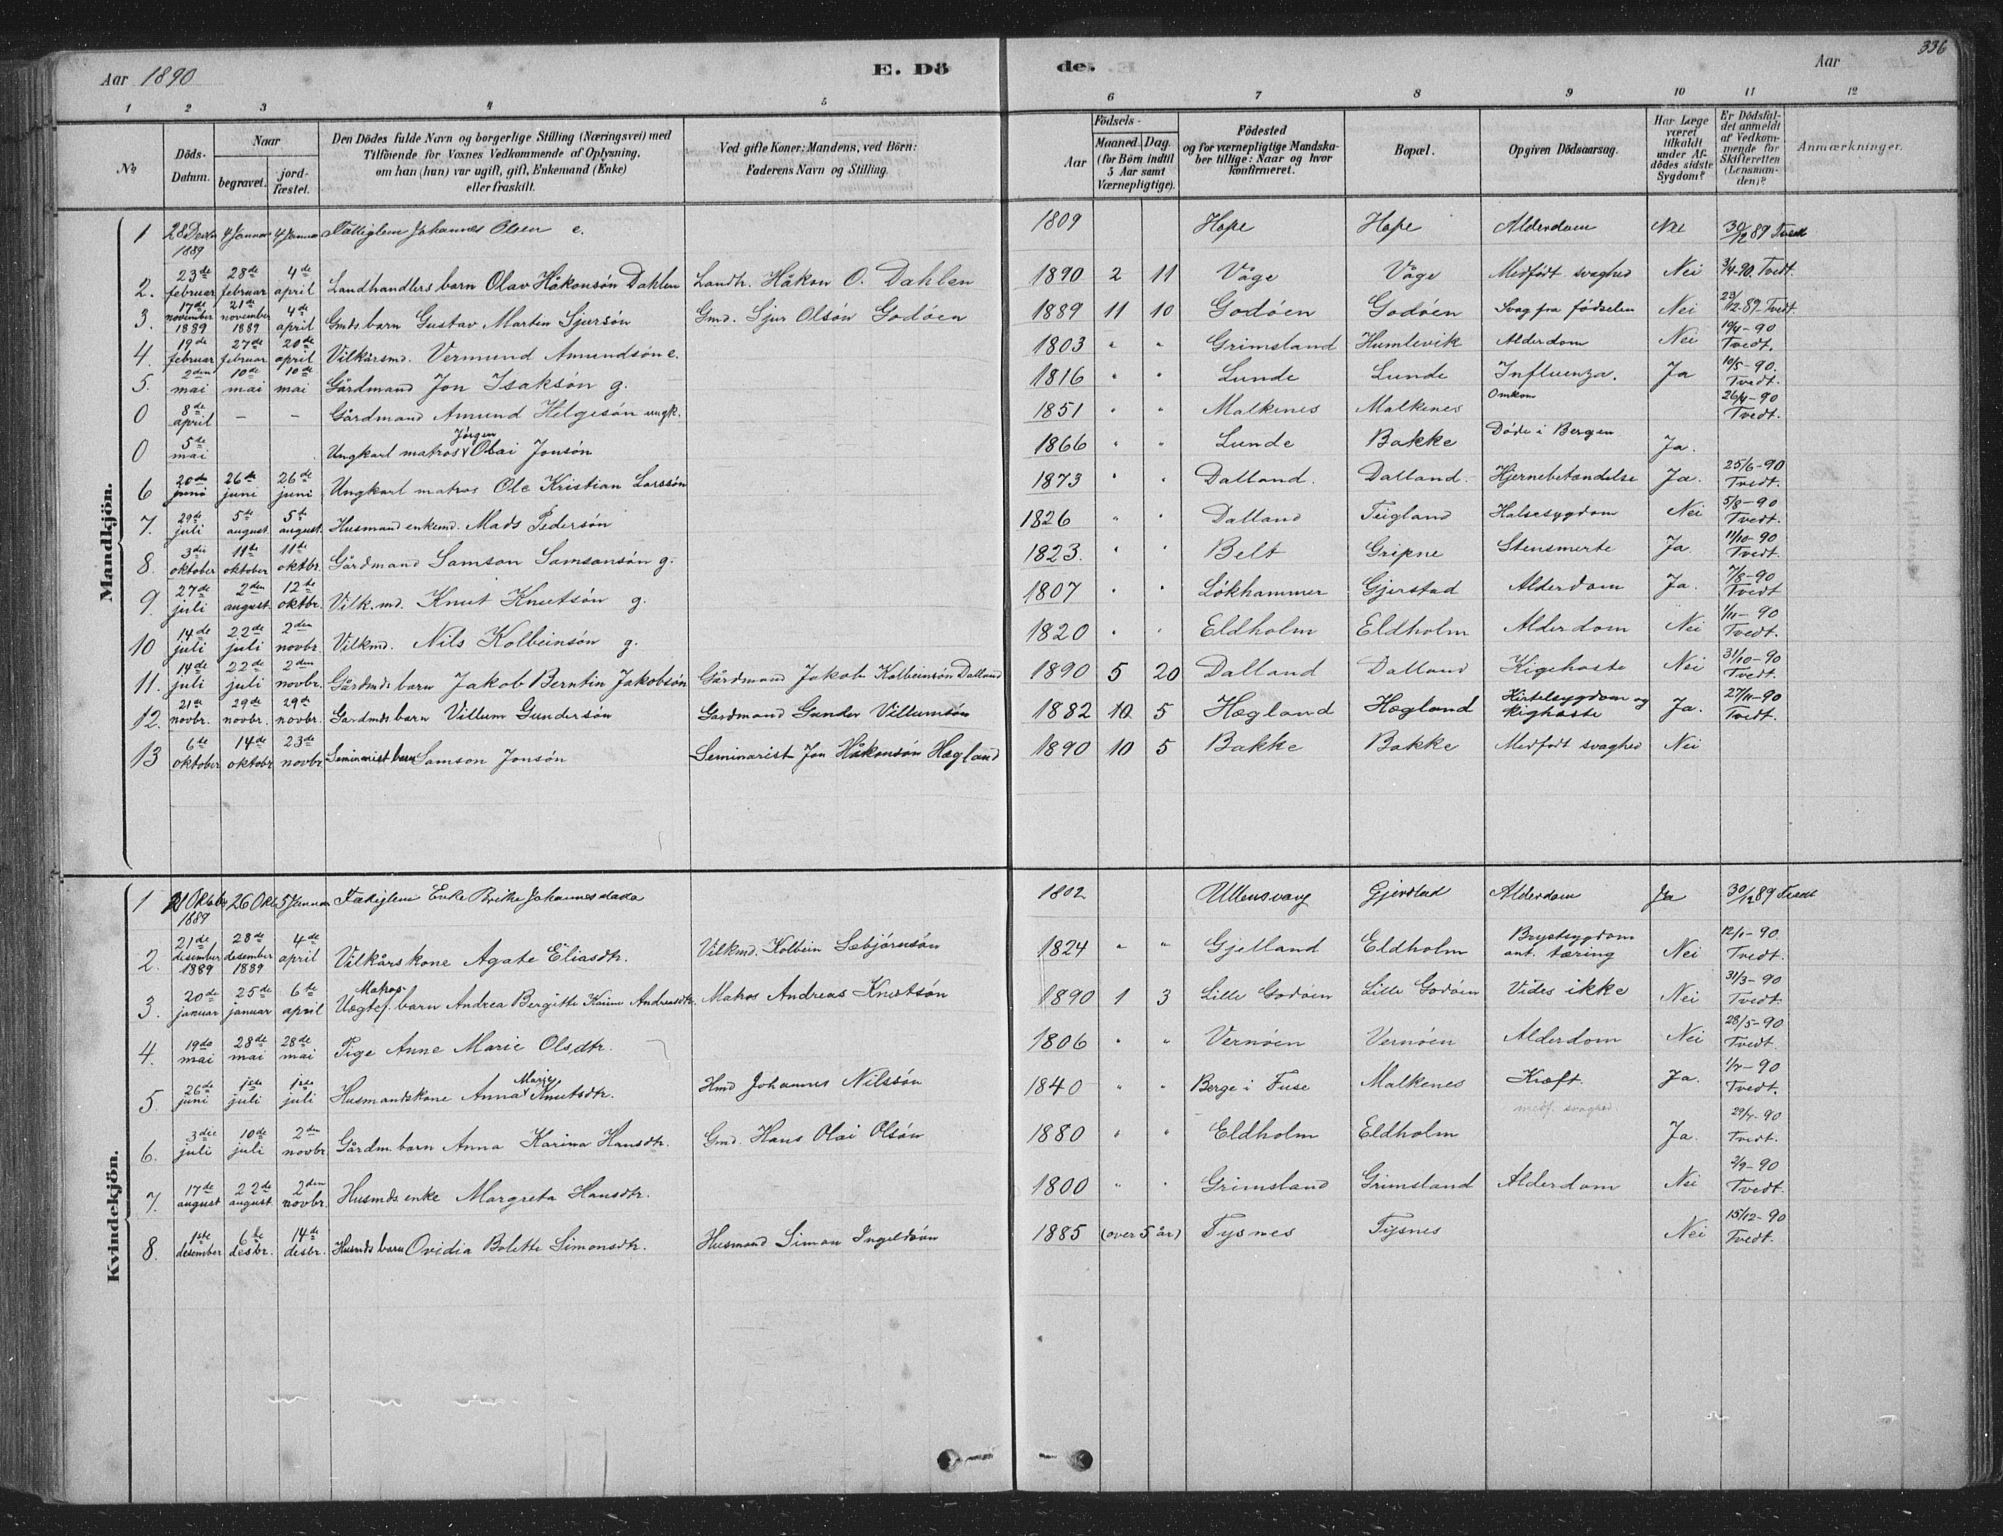 336
Aar 1890 E. Dö de. Aar
1 2 3 4 5 6 7 8 9 10 11 12
No
Döds-Datum.
Naar
begravet.
jord-fæstet.
Den Dödes fulde Navn og borgerlige Stilling (Næringsvei) med
Tilföiende for Voxnes Vedkommende af Oplysning,
om han (hun) var ugift, gift, Enkemand (Enke)
eller fraskilt.
Ved gifte Koner: Mandens, ved Börn:
Faderens Navn og Stilling.
Födsels-
Aar
Maaned. Dag.
(for Börn indtil
5 Aar samt
Værnepligtige).
Födested
og for værnepligtige Mandska-
ber tillige: Naar og hvor
konfirmeret.
Bopæl.
Opgiven Dödsaarsag.
Har Læge
været
tilkaldt
under Af-
dödes sidste
Sygdom?
Er Dödsfal-
det anmeldt
af Vedkom-
mende for
Skifteretten
(Lensman-
den)?
Anmærkninger.
Mandkjön.
1 28 1889 4 Januar 4 Januar Johannes Olsen e. 1809 Hope Hope Alderdom Nei 30/12 89 Tvedt
2. 23de februar 28de februar 4de april Landhandlers barn Olav Håkonsön Dahlen Landh. Håkon O. Dahlen 1890 2 11 Våge Våge Medfödt svaghed Nei 3/4-90. Tvedt.
3. 17de november 1889 21de november 1889 4de april Gmds barn Gustav Martin Sjursön Gmd. Sjur Olsön Godöen 1889 11 10 Godöen Godöen Svag fra födselen Nei 23/12-89-Tvedt.
4. 19de februar 27de februar 20de april Vilkårsmd. Vermund Amundsön e. 1803 " " Grimsland Humlevik Alderdom Nei 19/4-90 Tvedt.
5. 2den mai 10de mai 10de mai Gårdmand Jon Isaksön g. 1816 " " Lunde Lunde Influenza. Ja 10/5-90. Tvedt.
0 8de april - - Gårdmand Amund Helgesön ungk. 1851 " " Malkenes Malkenes Omkom 26/4-90 Tvedt.
0 5te mai Ungkarl matros Jörgen Obai Jonsön 1866 " " Lunde Bakke Döde i Bergen Ja.
6 20de juni 26de juni 26de juni Ungkarl matros Ole Kristian Larssön 1873 " " Dalland. Dalland. Hjernebetændelse Ja. 25/6-90 Tvedt.
7. 29de juli 5te august 5te august. Husmand enkemd. Mads Pedersön 1826 " " Dalland Teigland Halsesygdom Nei 5/8-90 Tvedt.
8. 3die oktober 11de oktober 11de oktbr. Gårdmand Samson Samsonsön g. 1823. " " Belt Gripne Stensmerte Ja. 11/10-90 Tvedt.
9. 27de juli 2den august. 12te oktbr. Vilk.md. Knut Knutsön g. 1807 " " Lökhammer Gjerstad Alderdom Ja. 7/8-90 Tvedt
10 14de juli 22de juli 2den novbr. Vilkmd. Nils Kolbeinsön g. 1820 " " Eldholm Eldholm Alderdom Nei 1/11-90 Tvedt.
11. 14de juli 22de juli 2den novbr. Gårdmds barn Jakob Berntin Jakobsön Gårdmand Jakob Kolbeinsön Dalland 1890 5 20 Dalland Dalland Kighoste Nei 31/10-90 Tvedt.
12. 21de novbr. 29de novbr. 29de novbr. Gårdmds barn Villum Gundersön Gårdmand Gunder Villumsön 1882 10 5 Hægland Hægland Kirtelsygdom og kighoste Ja. 27/11-90 Tvedt.
13 6te oktober 14de oktober 23de novbr Seminarist barn Samson Jonsön Seminarist Jon Håkonsön Hægland 1890 10 5 Bakke Bakke Medfödt svaghed Nei
Kvindekjön.
1 1889 26 Okt. 5 Januar Enke Brithe Johannesdada 1802 Ullensvang Gjerstad Alderdom Ja 30/12 89 Tvedt
2. 21de desember 1889 28de desember 1889 4de april Vilkårskone Agate Eliasdtr. Vilkmd. Kolbein Sæbjörnsön 1824 " " Gjelland Eldholm Brystsygdom ant. tæring Nei 12/1-90 Tvedt.
3. 20de januar 25de januar 6te april Matros Uægtef. barn Andrea Bergitte Karine Andreasdtr. Matros Andreas Knutsön 1890 1 3 Lille Godöen Lille Godöen Vides ikke Nei 31/3-90 Tvedt.
4. 19de mai 28de mai 28de mai Pige Anne Marie Olsdtr. 1806 " " Vernöen Vernöen Alderdom Nei 28/5-90 Tvedt.
5. 26de juni 1ste juli 1ste juli Husmandskone Anna Marie Knutsdtr. Hmd Johannes Nilssön 1840 " " Berge i Fuse Malkenes Kræft. Ja. 1/7-90 Tvedt.
6. 3die juli 10de juli 2den novbr. Gårdm. barn Anna Karina Hansdtr. Gmd. Hans Olai Olsön 1880 " " Eldholm Eldholm medf. svaghed. Ja. 29/7-90 Tvedt.
7. 17de august 22de august. 2den novbr. Husmds enke Margreta Hansdtr. 1800 " " Grimsland Grimsland Alderdom Nei 2/9-90 Tvedt.
8. 1ste desember 6te desbr. 14de desbr. Husmds barn Ovidia Bolette Simonsdtr. Husmand Simon Ingeldsön 1885 (over 5 år) Tysnes Tysnes Nei 15/12-90 Tvedt.